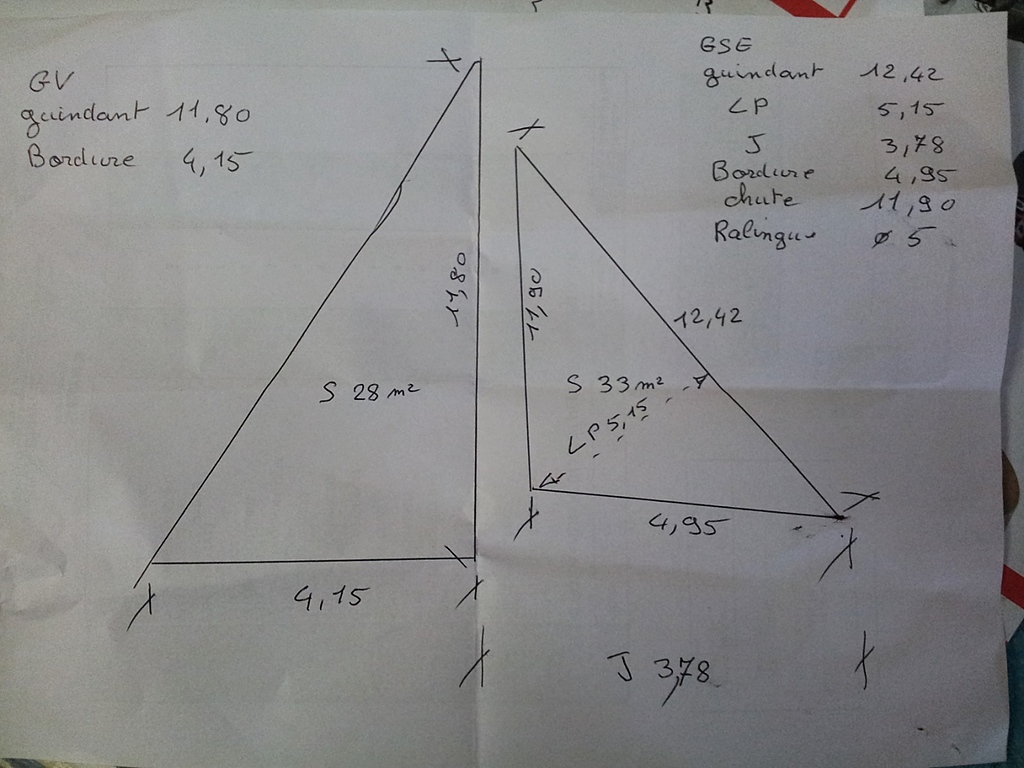 GV
guindant 11,80
Bordure 4,15
GSE
guindant 12,42
LP 5,15
J 3,78
Bordure 4,95
chute 11,90
Ralingue ø 5
11,80
S 28 m²
4,15
11,90
12,42
S 33 m²
LP 5,15
4,95
J 3,78